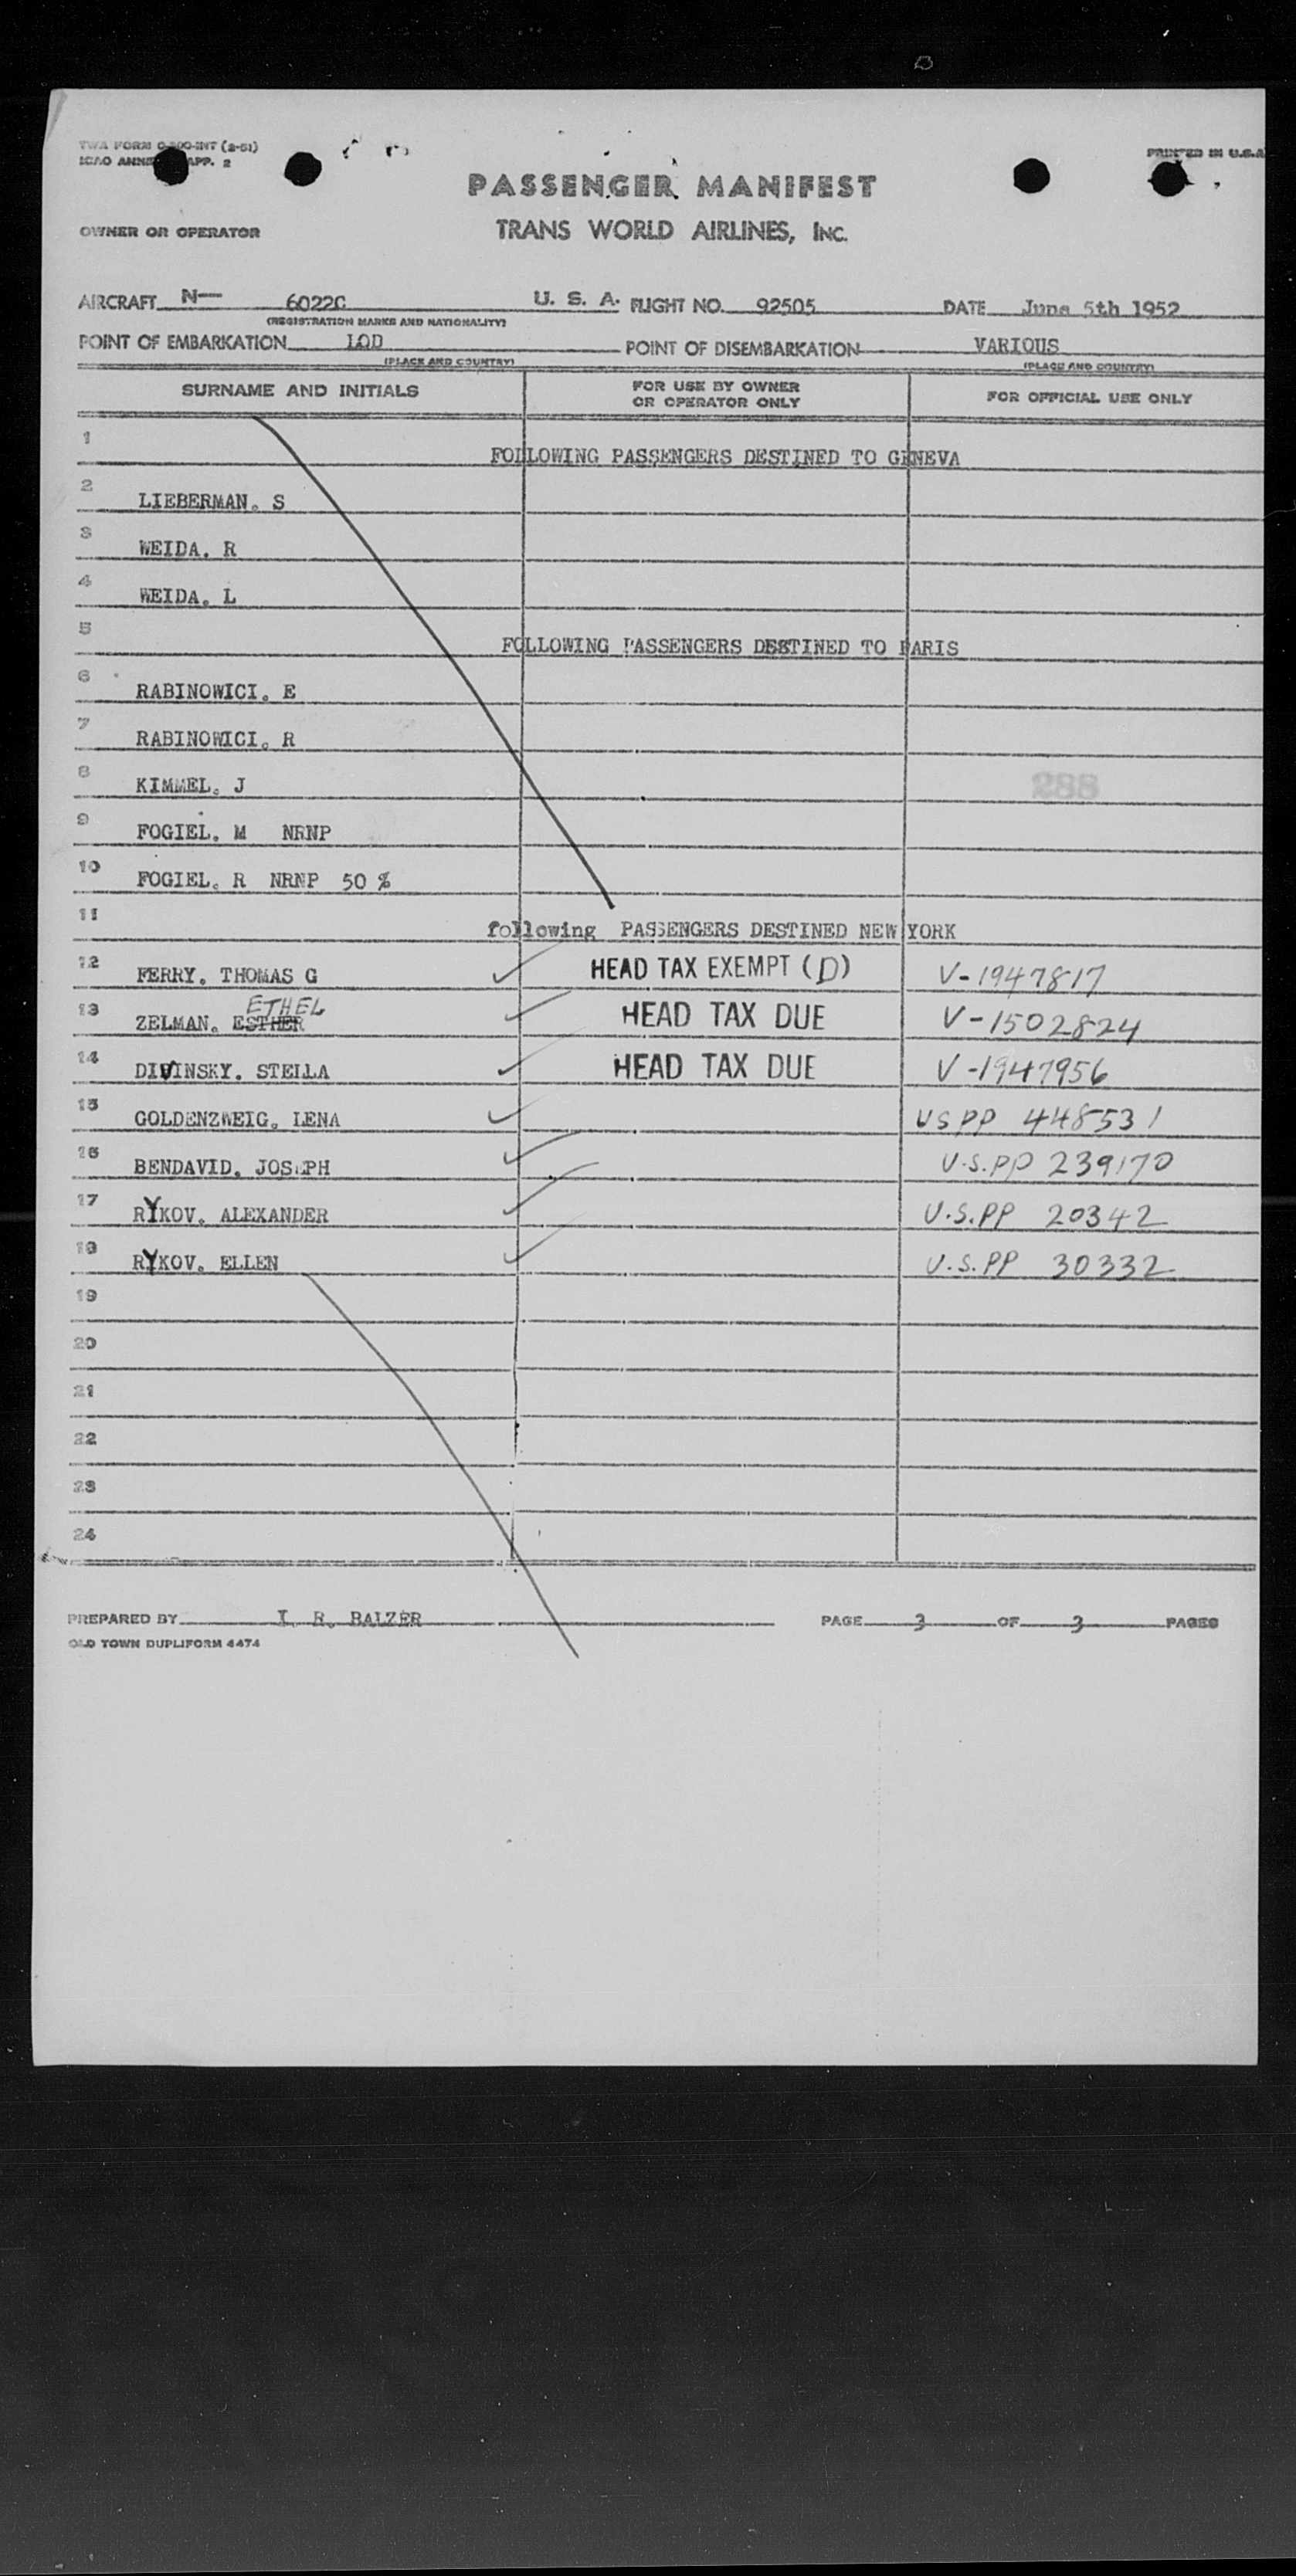 TWA FORM INT (2-51)
ICAO ANNEX APP. 2
PRINTED IN U.S.A
PASSENGER MANIFEST
OWNER OR OPERATOR
TRANS WORLD AIRLINES, INC.
AIRCRAFT N— 6022C U. S. A. FLIGHT NO. 92505 DATE June 5th 1952
(REGISTRATION MARKS AND NATIONALITY)
POINT OF EMBARKATION LOD POINT OF DISEMBARKATION VARIOUS
(PLACE AND COUNTRY) (PLACE AND COUNTRY)
SURNAME AND INITIALS FOR USE BY OWNER OR OPERATOR ONLY FOR OFFICIAL USE ONLY
1 FOLLOWING PASSENGERS DESTINED TO GENEVA
2 LIEBERMAN. S
3 WEIDA. R
4 WEIDA. L
5 FOLLOWING PASSENGERS DESTINED TO PARIS
6 RABINOWICI. E
7 RABINOWICI. R
8 KIMMEL. J 288
9 FOGIEL. M NRNP
10 FOGIEL. R NRNP 50 %
11 following PASSENGERS DESTINED NEW YORK
12 FERRY. THOMAS G HEAD TAX EXEMPT (D) V-1947817
ETHEL
13 ZELMAN. ESTHER HEAD TAX DUE V-1502824
14 DIVINSKY. STELLA HEAD TAX DUE V-1947956
15 GOLDENZWEIG. LENA US PP 448531
16 BENDAVID. JOSEPH U.S.PP 239170
17 RYKOV. ALEXANDER U.S.PP 20342
18 RYKOV. ELLEN U.S.PP 30332
19
20
21
22
23
24
PREPARED BY I. R. BALZER PAGE 3 OF 3 PAGES
OLD TOWN DUPLIFORM 4474